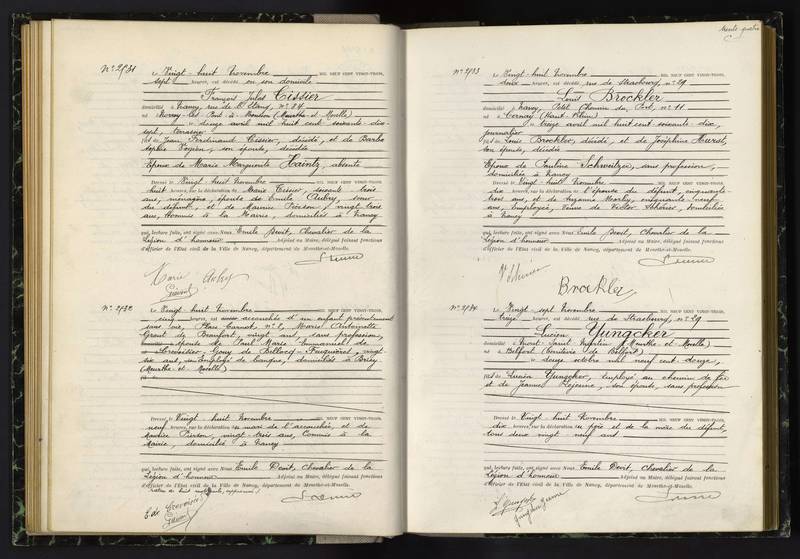 Nº 2931
Le Vingt-huit Novembre MIL NEUF CENT VINGT-TROIS,
sept heures, est décédé en son domicile
François Jules Cissier
domicilié à Nancy, rue de l'Etang, nº 84
né à
le treize avril mil huit cent soixante dix-
sept, terrassier
fils de Jean Ferdinand Cissier, décédé, et de Barbe
Sophie son épouse, décédée
Epoux de Marie Marguerite Haintz, absente
Dressé le Vingt-huit Novembre MIL NEUF CENT VINGT-TROIS,
huit heures, sur la déclaration de Marie Cissier, soixante trois
ans, ménagère, épouse de Emile Aubry, soeur
du défunt, et de Maurice Pierson, vingt trois
ans, Commis à la Mairie, domiciliés à Nancy
qui, lecture faite, ont signé avec Nous Emile Devit, Chevalier de la
Légion d'honneur Adjoint au Maire, délégué faisant fonctions
d'Officier de l'Etat civil de la Ville de Nancy, département de Meurthe-et-Moselle.
Marie Aubry
Nº 2932
Le Vingt-huit Novembre MIL NEUF CENT VINGT-TROIS,
cinq heures, est accouchée d'un enfant présentement
sans vie, Place Carnot nº 2, Marie Antoinette
de Beaufort, vingt ans, sans profession,
épouse de Paul Marie Emmanuel de
vingt
dix ans, Employé de banque, domiciliés à Briey
(Meurthe et Moselle)
Dressé le Vingt-huit Novembre MIL NEUF CENT VINGT-TROIS,
neuf heures, sur la déclaration du mari de l'accouchée, et de
Maurice Pierson, vingt-trois ans, Commis à la
Mairie, domicilié à Nancy
qui, lecture faite, ont signé avec Nous Emile Devit, Chevalier de la
Légion d'honneur Adjoint au Maire, délégué faisant fonctions
d'Officier de l'Etat civil de la Ville de Nancy, département de Meurthe-et-Moselle.
trente-quatre
Nº 2933
Le Vingt-huit Novembre MIL NEUF CENT VINGT-TROIS,
deux heures, est décédé rue de Strasbourg, nº 29
Louis Brockler
domicilié à Nancy, Petit Chemin du Port, nº 11
né à Cernay (Haut-Rhin)
le treize avril mil huit cent soixante-dix,
journalier
fils de Louis Brockler, décédé, et de Joséphine Hurst,
son épouse, décédée
Epoux de Pauline Schweitzer, sans profession,
domiciliée à Nancy
Dressé le Vingt-huit Novembre MIL NEUF CENT VINGT-TROIS,
dix heures, sur la déclaration de l'épouse du défunt, cinquante-
trois ans, et de Suzanne cinquante-neuf
ans, employée, Veuve de Victor domiciliés
à Nancy
qui, lecture faite, ont signé avec Nous Emile Devit, Chevalier de la
Légion d'honneur Adjoint au Maire, délégué faisant fonctions
d'Officier de l'Etat civil de la Ville de Nancy, département de Meurthe-et-Moselle.
Brockler
Nº 2934
Le Vingt sept Novembre MIL NEUF CENT VINGT-TROIS,
treize heures, est décédé rue de Strasbourg, nº 29
Lucien Yungcker
domicilié à Mont-Saint Martin (Meurthe et Moselle)
né à Belfort (Territoire de Belfort)
le douze octobre mil neuf cent-douze,
fils de Lucien Yungcker, employé au chemin de fer
et de Jeanne Lejeune, son épouse, sans profession
Dressé le Vingt-huit Novembre MIL NEUF CENT VINGT-TROIS,
dix heures, sur la déclaration du père et de la mère du défunt,
tous deux vingt-neuf ans
qui, lecture faite, ont signé avec Nous Emile Devit, Chevalier de la
Légion d'honneur Adjoint au Maire, délégué faisant fonctions
d'Officier de l'Etat civil de la Ville de Nancy, département de Meurthe-et-Moselle.